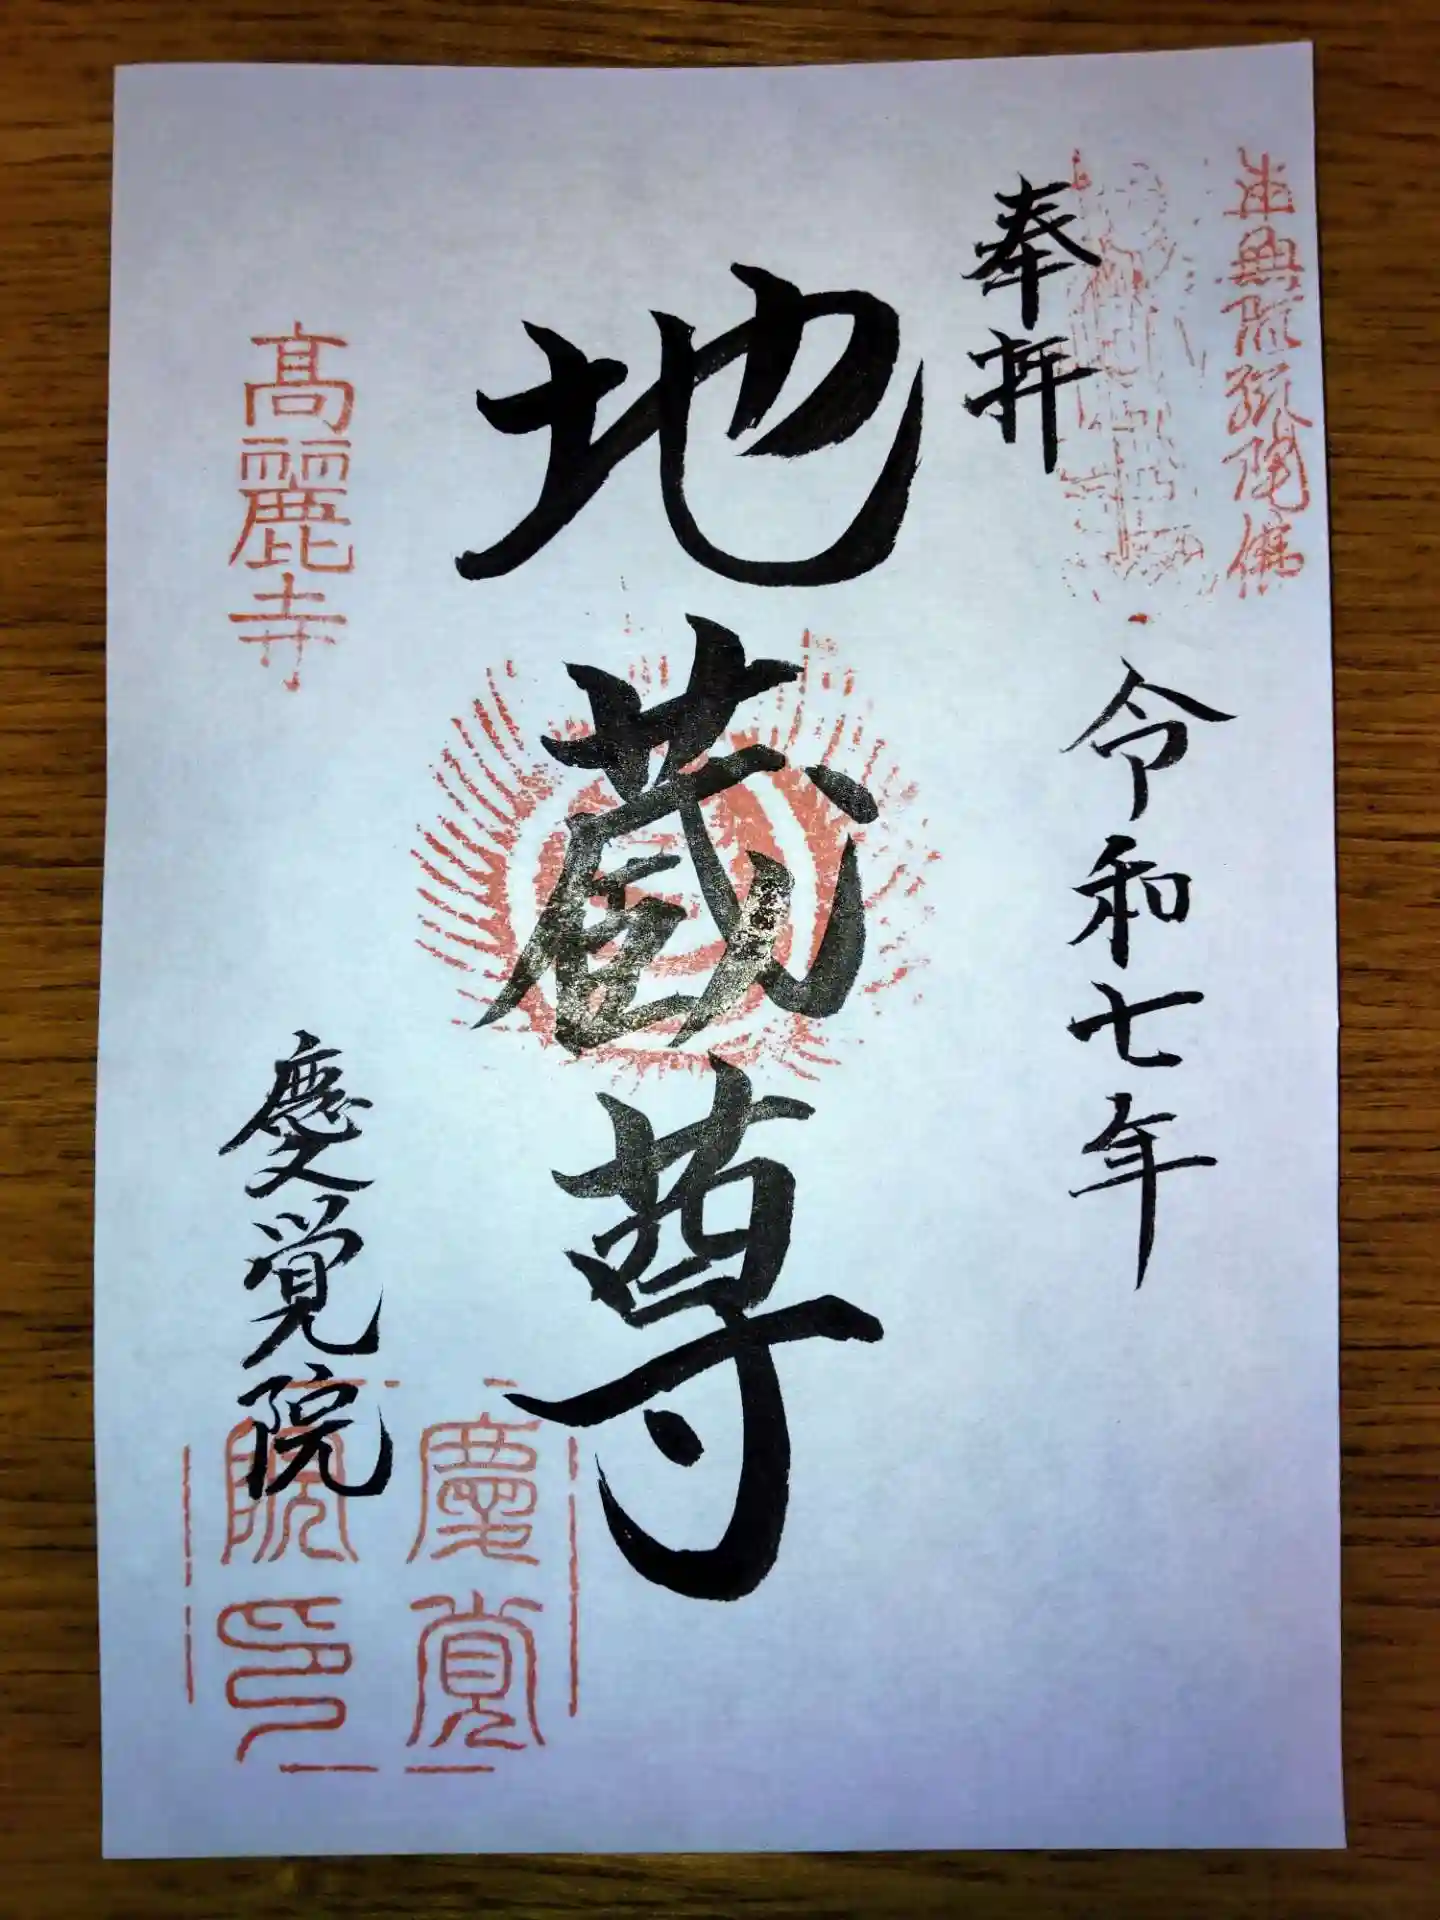 阿弥陀佛
奉拝
令和七年
地蔵尊
高麗寺
慶覚院
慶覚
院印